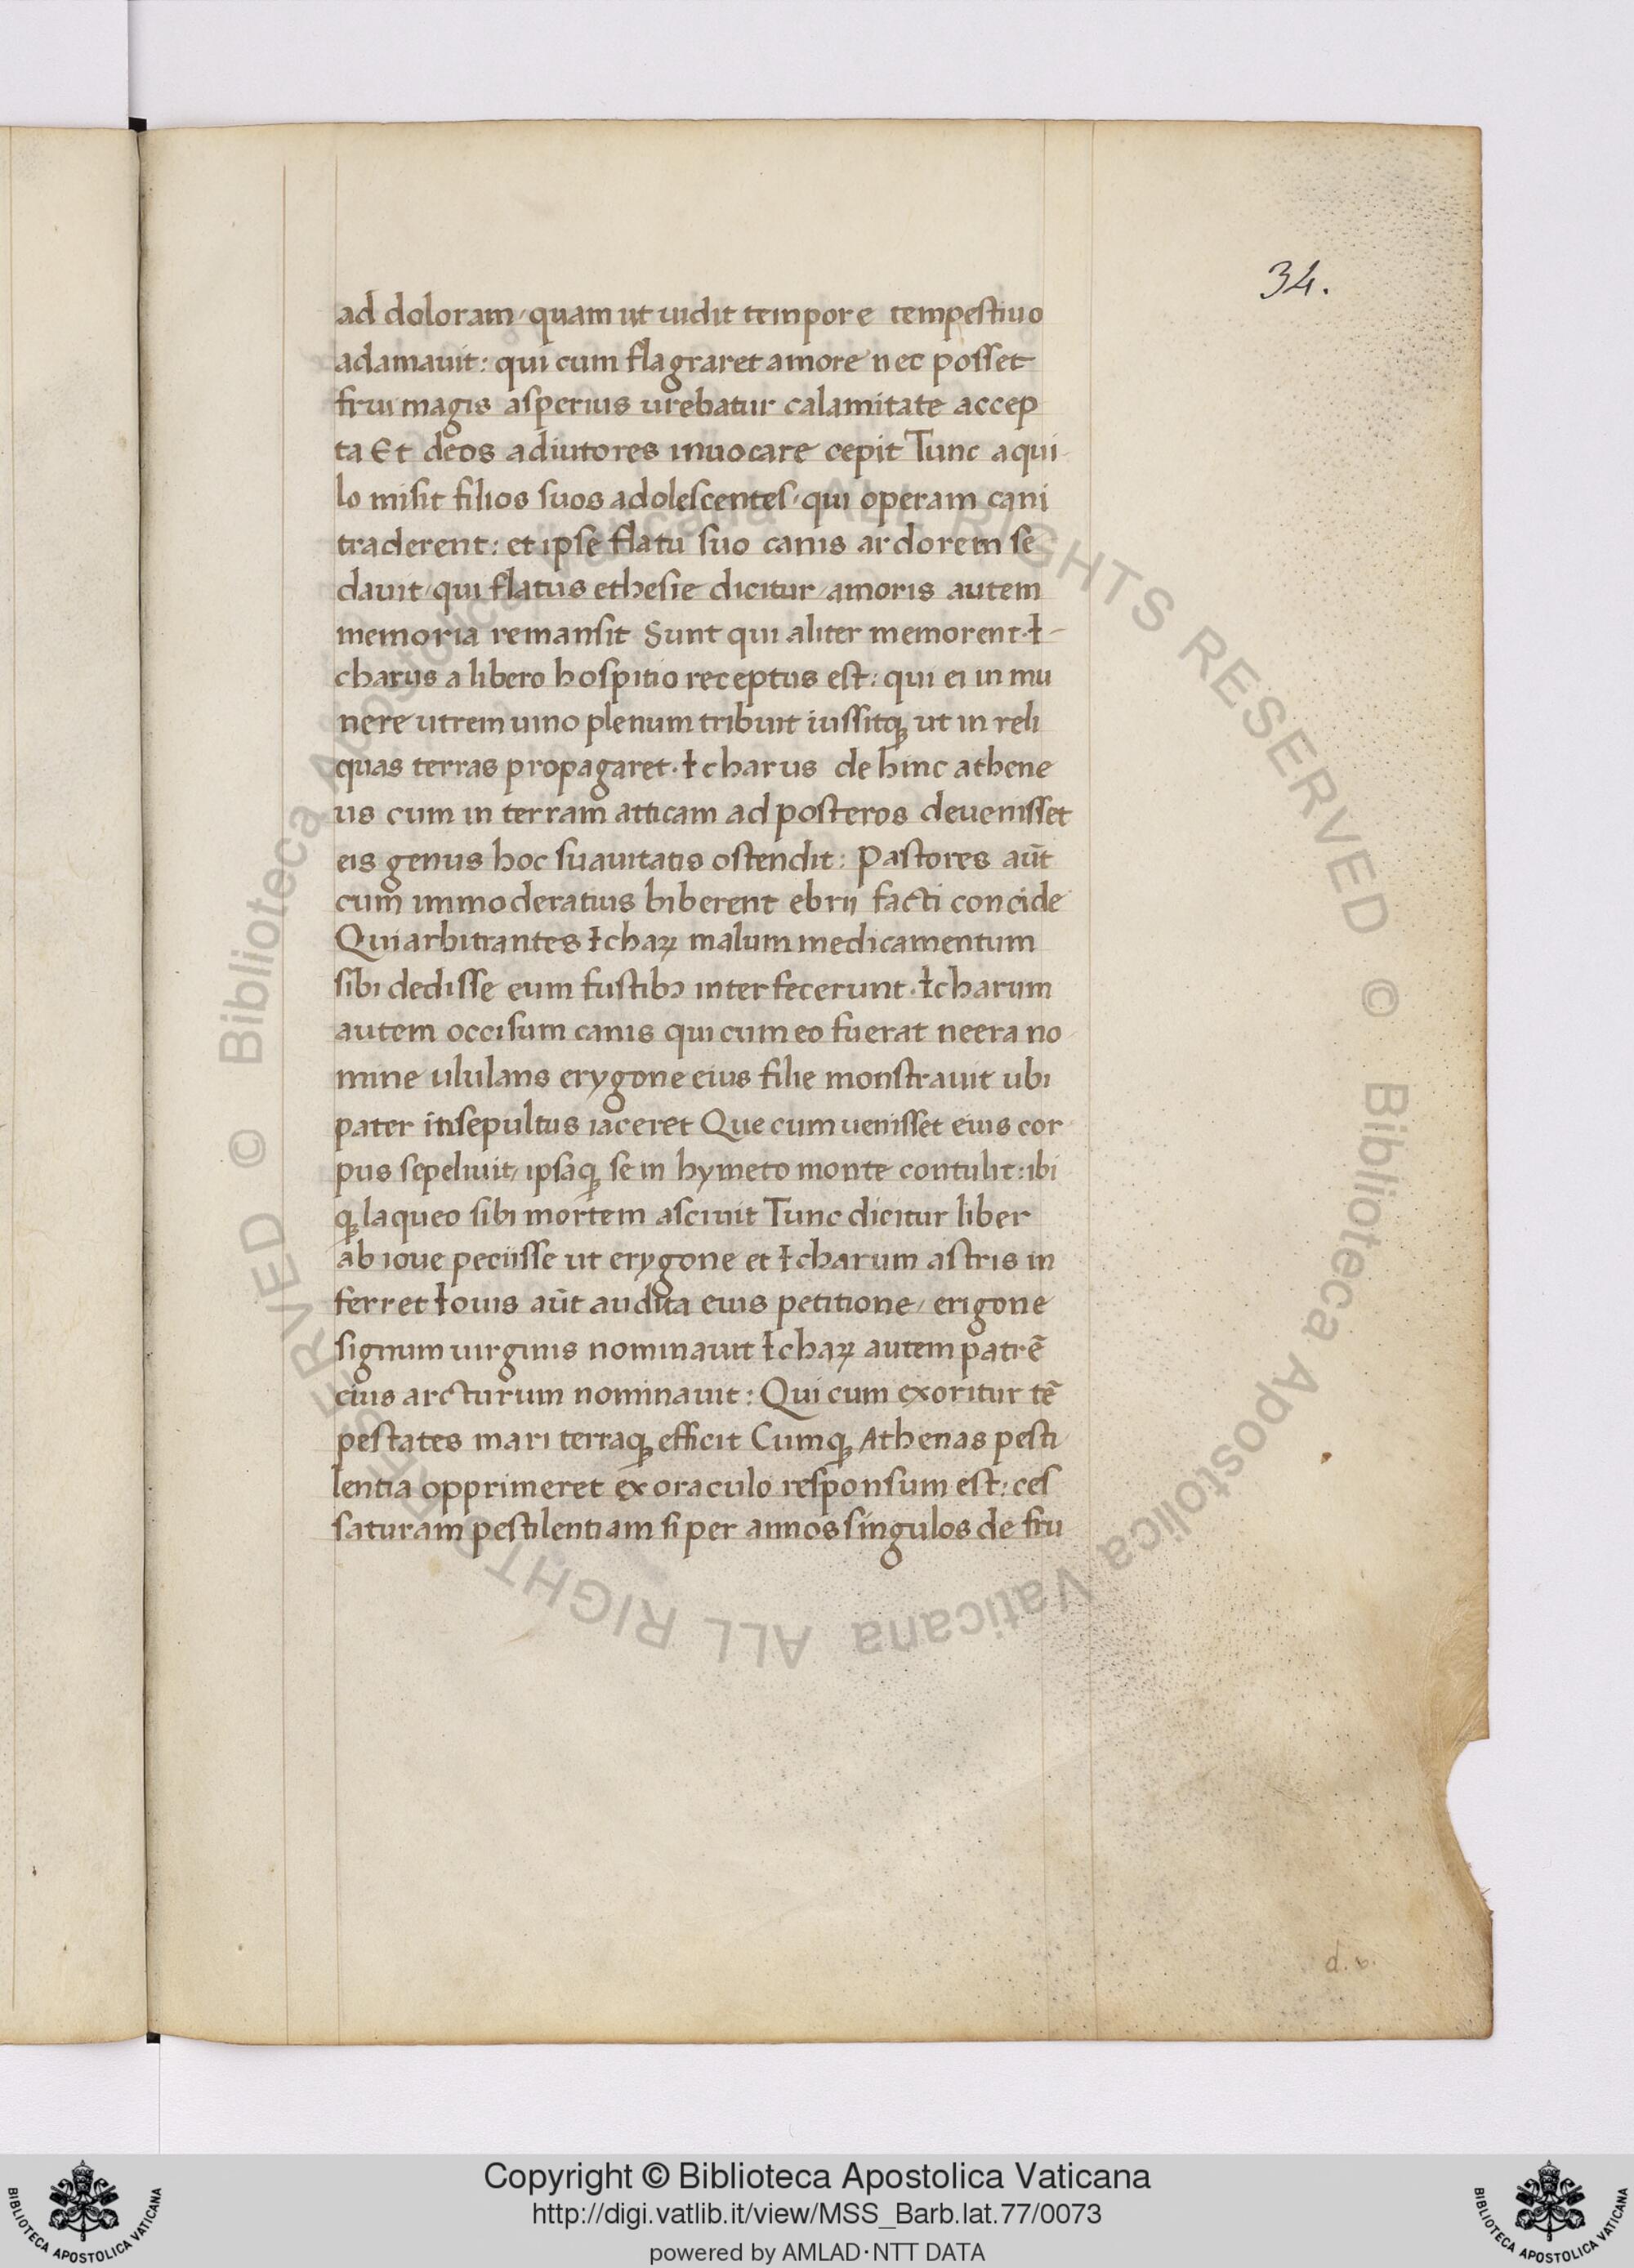 34.
ad doloram / quam ut uidit tempore tempestiuo
adamauit : qui cum flagraret amore nec posset
frui magis asperius urebatur calamitate accep
ta Et deos adiutores inuocare cepit Tunc aqui
lo misit filios suos adolescentes / qui operam cani
traderent : et ipse flatu suo canis ardorem se
dauit / qui flatus ethesie dicitur / amoris autem
memoria remansit Sunt qui aliter memorent . I-
charus a libero hospitio receptus est : qui ei in mu
nere utrem uino plenum tribuit iussitqꝫ ut in reli
quas terras propagaret . Icharus dehinc athene
us cum in terram atticam ad posteros deuenisset
eis genus hoc suauitatis ostendit : Pastores aūt
cum immoderatius biberent ebrij facti concide
Qui arbitrantes Ichaꝝ malum medicamentum
sibi dedisse eum fustibꝫ interfecerunt . Icharum
autem occisum canis qui cum eo fuerat neera no
mine ululans erygone eius filie monstrauit ubi
pater insepultus iaceret Que cum uenisset eius cor
pus sepeliuit / ipsaqꝫ se in hymeto monte contulit : ibi
qꝫ laqueo sibi mortem asciuit Tunc dicitur liber
ab ioue peciisse ut erygone et Icharum astris in
ferret Iouis aūt audita eius petitione / erigone
signum uirginis nominauit Ichaꝝ autem patrē
eius arcturum nominauit : Qui cum exoritur tē
pestates mari terraqꝫ efficit Cumqꝫ Athenas pesti
lentia opprimeret ex oraculo responsum est : ces
saturam pestilentiam si per annos singulos de fru
d. v.
© Biblioteca Apostolica Vaticana ALL RIGHTS RESERVED © Biblioteca Apostolica Vaticana ALL RIGHTS RESERVED
Copyright © Biblioteca Apostolica Vaticana
http://digi.vatlib.it/view/MSS_Barb.lat.77/0073
powered by AMLAD·NTT DATA
BIBLIOTECA APOSTOLICA VATICANA
BIBLIOTECA APOSTOLICA VATICANA